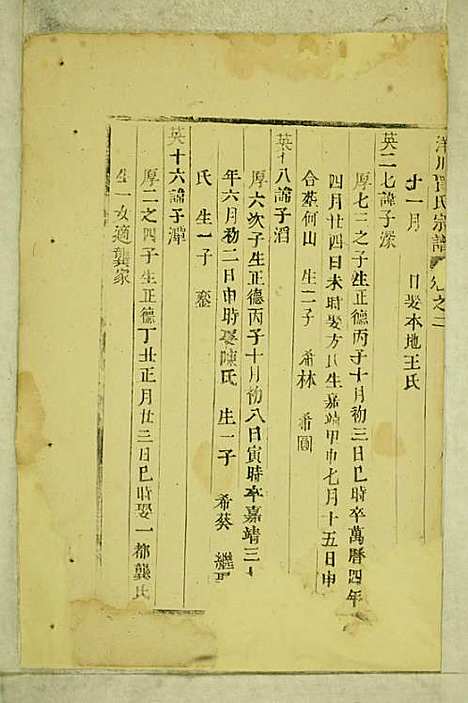 川 氏宗譜 卷之二
十一月 日娶本地王氏
英二七諱子深
厚七三之子生正德丙子十月初三日巳時卒萬曆四年
四月廿四日未時娶方氏生嘉靖甲申七月十五日申
合葬何山 生二子 希林 希圓
英十八諱子滔
厚六次子生正德丙子十月初八日寅時卒嘉靖三十
年六月初二日申時娶陳氏 生一子 希葵 繼
氏 生一子
英十六諱子潭
厚二之四子生正德丁丑正月廿三日巳時娶一都龔氏
生一女適龔家